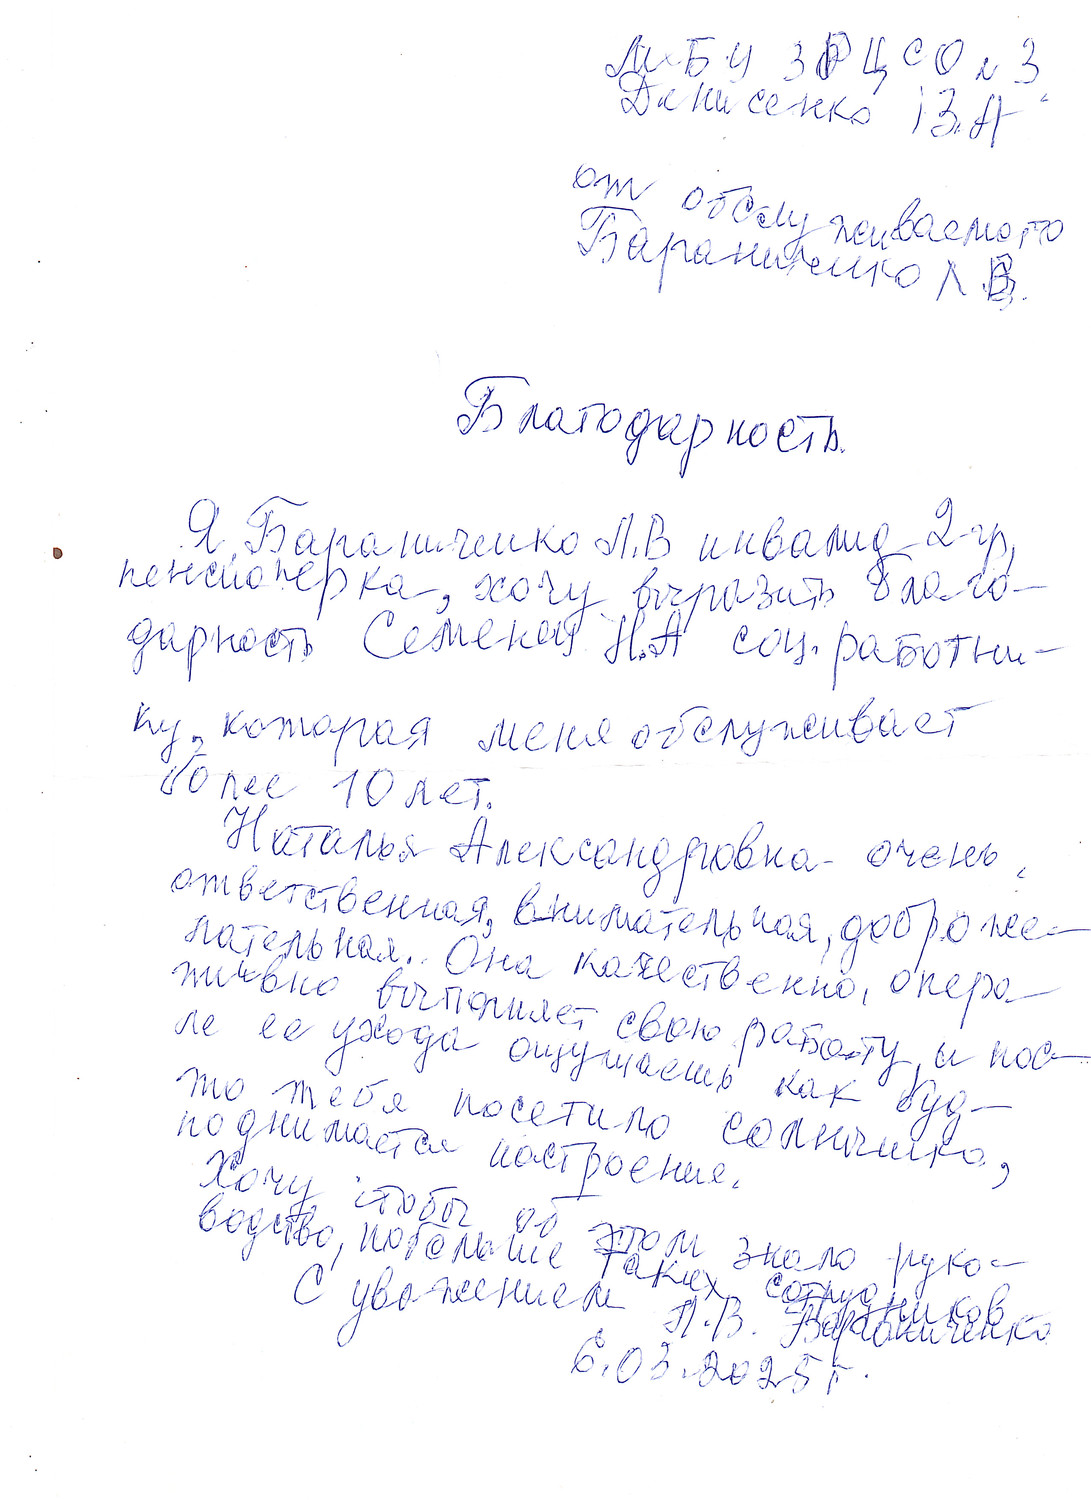 МБУ ЗРЦСО №3
Денисенко В.А
от обслуживаемого
Бараниченко Л В.
Благодарность.
Я, Бараниченко Л.В инвалид 2-гр,
пенсионерка, хочу выразить благо-
дарность Семеней Н.А соц. работни-
ку, которая меня обслуживает
более 10 лет.
Наталья Александровна очень
ответственная, внимательная, доброже-
лательная. Она качественно, опера-
тивно выполняет свою работу, и пос-
ле ее ухода ощущаешь как буд-
то тебя посетило солнышко,
поднимается настроение.
Хочу чтобы об этом знало руко-
водство, побольше таких сотрудников
С уважением Л.В. Бараниченко
6.03.2025 г.